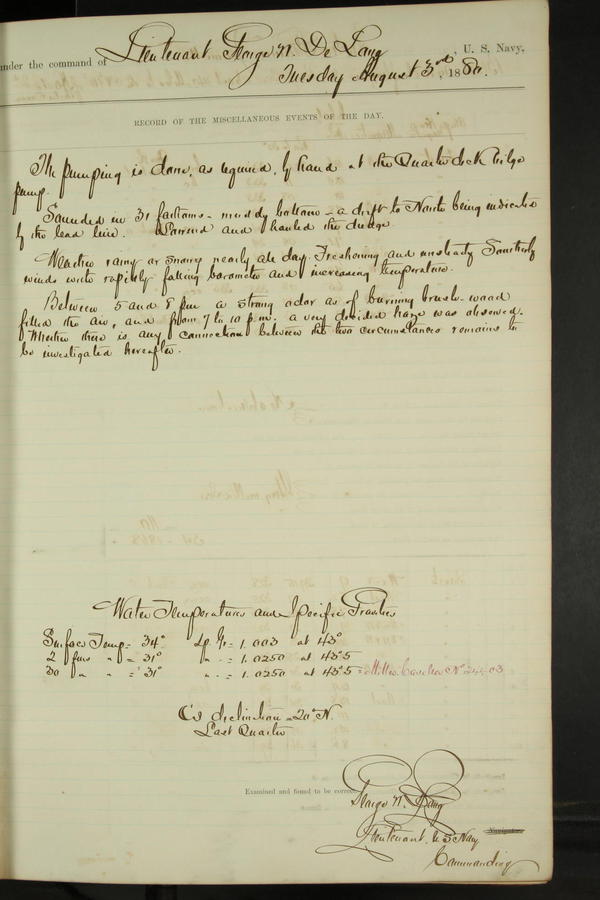 under the command of Lieutenant George W. De Long, U. S. Navy,
Tuesday August 3rd, 1880.
RECORD OF THE MISCELLANEOUS EVENTS OF THE DAY.
The pumping is done, as required, by hand at the Quarter deck bilge
pump.
Sounded in 31 fathoms - muddy bottom - a drift to North being indicated
by the lead line. Lowered and hauled the dredge.
Weather rainy or snowy nearly all day. Freshening and unsteady Southerly
winds with rapidly falling barometer and increasing temperature.
Between 5 and 8 pm a strong odor as of burning brush-wood
filled the air, and from 7 to 10 p.m. a very decided haze was observed.
Whether there is any connection between the two circumstances remains to
be investigated hereafter.
Water Temperatures and Specific Gravities
Surface Temp = 34° Sp. Gr = 1.003 at 43°
2 fms " = 31° " . = 1.0250 at 45°5
30 fm " " = 31° " . = 1.0250 at 45°5 =
C's declination = 20° N.
Last Quarter
Examined and found to be correct.
George W. De Long
Lieutenant. U S Navy
Navigator.
Commanding